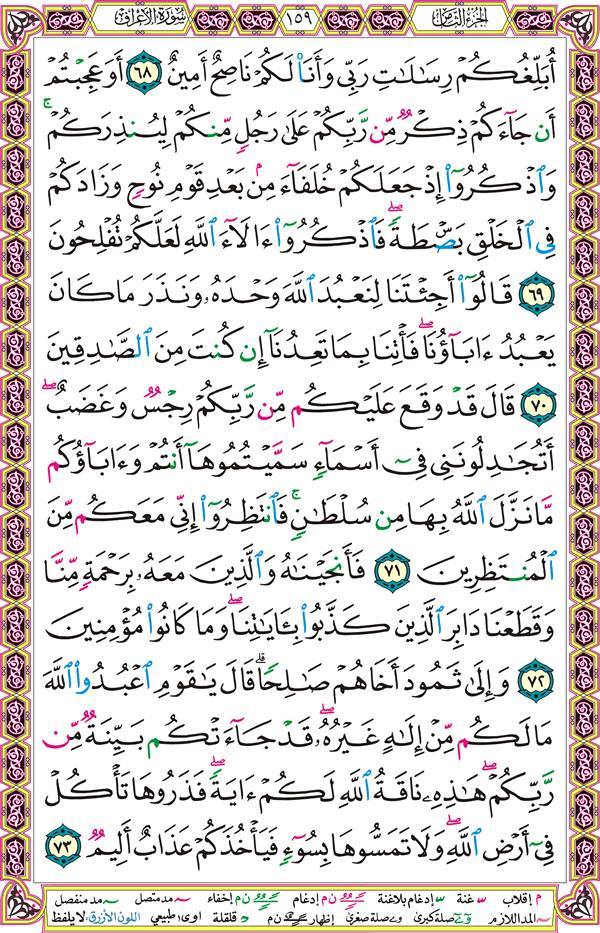 الجزء الثامن ١٥٩ سورة الأعراف
أُبَلِّغُكُمْ رِسَالَاتِ رَبِّي وَأَنَا۠ لَكُمْ نَاصِحٌ أَمِينٌ ٦٨ أَوَعَجِبْتُمْ
أَن جَآءَكُمْ ذِكْرٌ مِّن رَّبِّكُمْ عَلَىٰ رَجُلٍ مِّنكُمْ لِيُنذِرَكُمْ ۚ
وَٱذْكُرُوٓا۟ إِذْ جَعَلَكُمْ خُلَفَآءَ مِنۢ بَعْدِ قَوْمِ نُوحٍ وَزَادَكُمْ
فِي ٱلْخَلْقِ بَصْۜطَةً ۖ فَٱذْكُرُوٓا۟ ءَالَآءَ ٱللَّهِ لَعَلَّكُمْ تُفْلِحُونَ
٦٩ قَالُوٓا۟ أَجِئْتَنَا لِنَعْبُدَ ٱللَّهَ وَحْدَهُۥ وَنَذَرَ مَا كَانَ
يَعْبُدُ ءَابَآؤُنَا ۖ فَأْتِنَا بِمَا تَعِدُنَآ إِن كُنتَ مِنَ ٱلصَّـٰدِقِينَ
٧٠ قَالَ قَدْ وَقَعَ عَلَيْكُم مِّن رَّبِّكُمْ رِجْسٌ وَغَضَبٌ ۖ
أَتُجَـٰدِلُونَنِي فِيٓ أَسْمَآءٍ سَمَّيْتُمُوهَآ أَنتُمْ وَءَابَآؤُكُم
مَّا نَزَّلَ ٱللَّهُ بِهَا مِن سُلْطَـٰنٍ ۚ فَٱنتَظِرُوٓا۟ إِنِّي مَعَكُم مِّنَ
ٱلْمُنتَظِرِينَ ٧١ فَأَنجَيْنَـٰهُ وَٱلَّذِينَ مَعَهُۥ بِرَحْمَةٍ مِّنَّا
وَقَطَعْنَا دَابِرَ ٱلَّذِينَ كَذَّبُوا۟ بِـَٔايَـٰتِنَا ۖ وَمَا كَانُوا۟ مُؤْمِنِينَ
٧٢ وَإِلَىٰ ثَمُودَ أَخَاهُمْ صَـٰلِحًا ۗ قَالَ يَـٰقَوْمِ ٱعْبُدُوا۟ ٱللَّهَ
مَا لَكُم مِّنْ إِلَـٰهٍ غَيْرُهُۥ ۖ قَدْ جَآءَتْكُم بَيِّنَةٌ مِّن
رَّبِّكُمْ ۖ هَـٰذِهِۦ نَاقَةُ ٱللَّهِ لَكُمْ ءَايَةً ۖ فَذَرُوهَا تَأْكُلْ
فِيٓ أَرْضِ ٱللَّهِ ۖ وَلَا تَمَسُّوهَا بِسُوٓءٍ فَيَأْخُذَكُمْ عَذَابٌ أَلِيمٌ ٧٣
م إقلاب غنة إدغام بلاغنة ن م إدغام إخفاء مد متصل مد منفصل
المد اللازم صلة كبرى صلة صغرى إظهار ن م قلقلة اوى طبيعي اللون الأزرق لا يلفظ